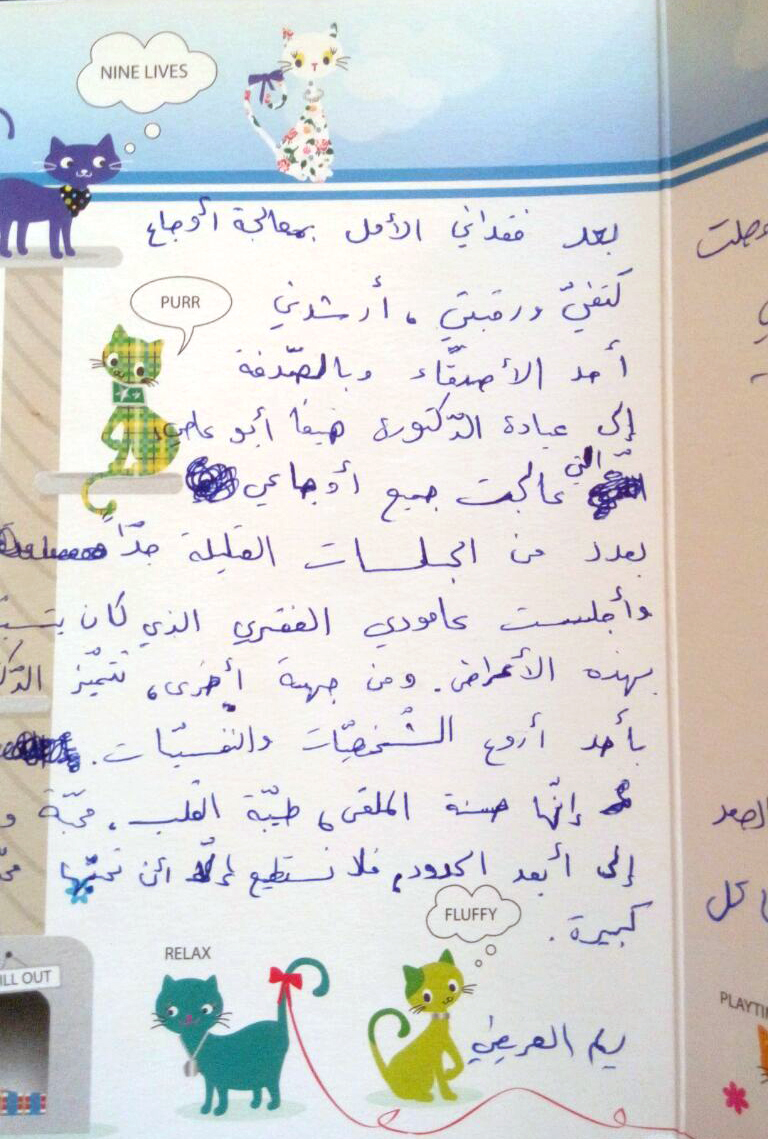 NINE LIVES
بعد فقداني الأمل بمعالجة أوجاع
PURR
كتفيّ ورقبتي، أرشدني
أحد الأصدقاء وبالصّدفة
إلى عيادة الدّكتورة هيفا أبو عاصي،
التي عالجت جميع أوجاعي
بعدد من الجلسات القليلة جدًّا
وأجلست عامودي الفقري الذي كان
بهذه الأعراض. ومن جهة أخرى، تتميّز
بأحد أروع الشّخصيّات والنفسيّات.
إنّها حسنة الملقى، طيّبة القلب، محبّة
إلى أبعد الحدود، فلا نستطيع إلّا أن نحبّها
كبيرة.
FLUFFY
RELAX
ريم العريضي